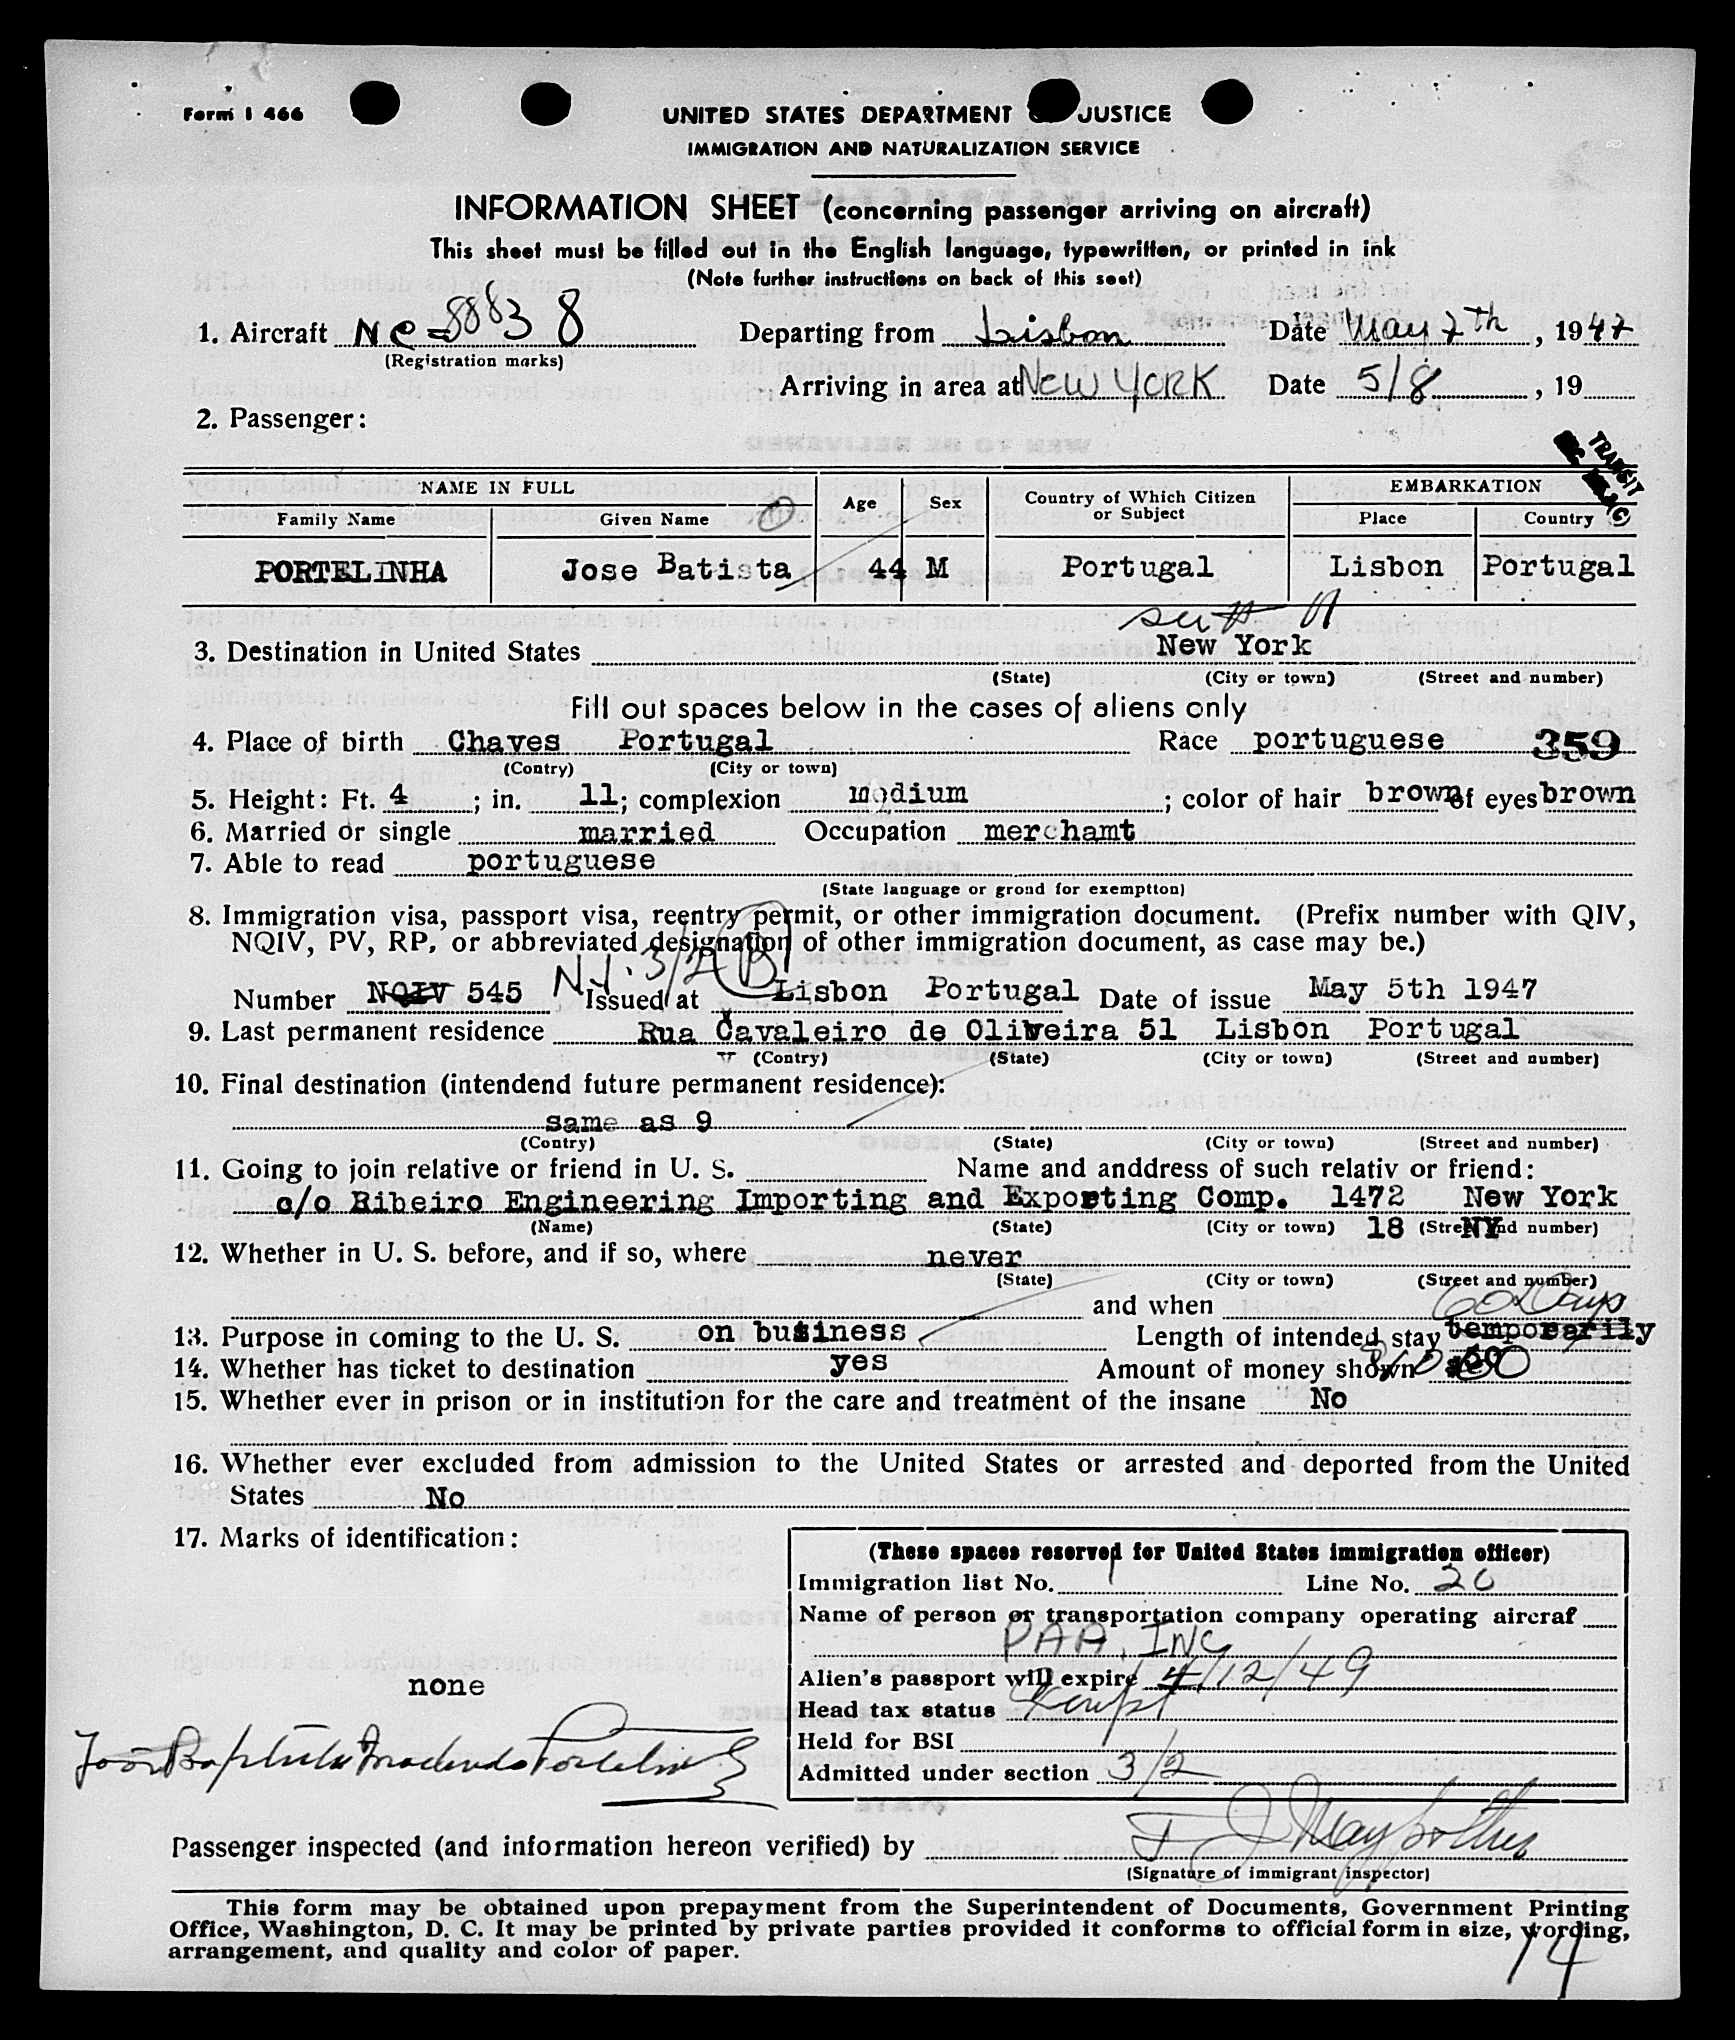 Form I 466
UNITED STATES DEPARTMENT OF JUSTICE
IMMIGRATION AND NATURALIZATION SERVICE
INFORMATION SHEET (concerning passenger arriving on aircraft)
This sheet must be filled out in the English language, typewritten, or printed in ink
(Note further instructions on back of this seet)
1. Aircraft NC-88838 Departing from Lisbon Date May 7th, 1947
(Registration marks)
Arriving in area at NEW YORK Date 5/8, 19
2. Passenger:
TRANSIT
NAME IN FULL Age Sex Country of Which Citizen or Subject EMBARKATION
Family Name Given Name Place Country
PORTELINHA Jose Batista 44 M Portugal Lisbon Portugal
3. Destination in United States New York
(State) (City or town) (Street and number)
Fill out spaces below in the cases of aliens only
4. Place of birth Chaves Portugal Race portuguese 359
(Contry) (City or town)
5. Height: Ft. 4; in. 11; complexion medium; color of hair brown of eyes brown
6. Married or single married Occupation merchamt
7. Able to read portuguese
(State language or grond for exemption)
8. Immigration visa, passport visa, reentry permit, or other immigration document. (Prefix number with QIV,
NQIV, PV, RP, or abbreviated designation of other immigration document, as case may be.)
N.I. 3/2 (B)
Number NQIV 545 Issued at Lisbon Portugal Date of issue May 5th 1947
9. Last permanent residence Rua Cavaleiro de Oliveira 51 Lisbon Portugal
(Contry) (State) (City or town) (Street and number)
10. Final destination (intendend future permanent residence):
same as 9
(Contry) (State) (City or town) (Street and number)
11. Going to join relative or friend in U. S. Name and anddress of such relativ or friend:
c/o Ribeiro Engineering Importing and Exporting Comp. 1472 New York
(Name) (State) (City or town) 18 (Street and number) NY
12. Whether in U. S. before, and if so, where never
(State) (City or town) (Street and number)
and when
60 Days
13. Purpose in coming to the U. S. on business Length of intended stay temporarily
14. Whether has ticket to destination yes Amount of money shown
15. Whether ever in prison or in institution for the care and treatment of the insane No
16. Whether ever excluded from admission to the United States or arrested and deported from the United
States No
17. Marks of identification:
none
(These spaces reserved for United States immigration officer)
Immigration list No. 1 Line No. 20
Name of person or transportation company operating aircraf
PAA, INC
Alien's passport will expire 4/12/49
Head tax status Exempt
Held for BSI
Admitted under section 3/2
Passenger inspected (and information hereon verified) by
(Signature of immigrant inspector)
This form may be obtained upon prepayment from the Superintendent of Documents, Government Printing
Office, Washington, D. C. It may be printed by private parties provided it conforms to official form in size, wording,
arrangement, and quality and color of paper.
14